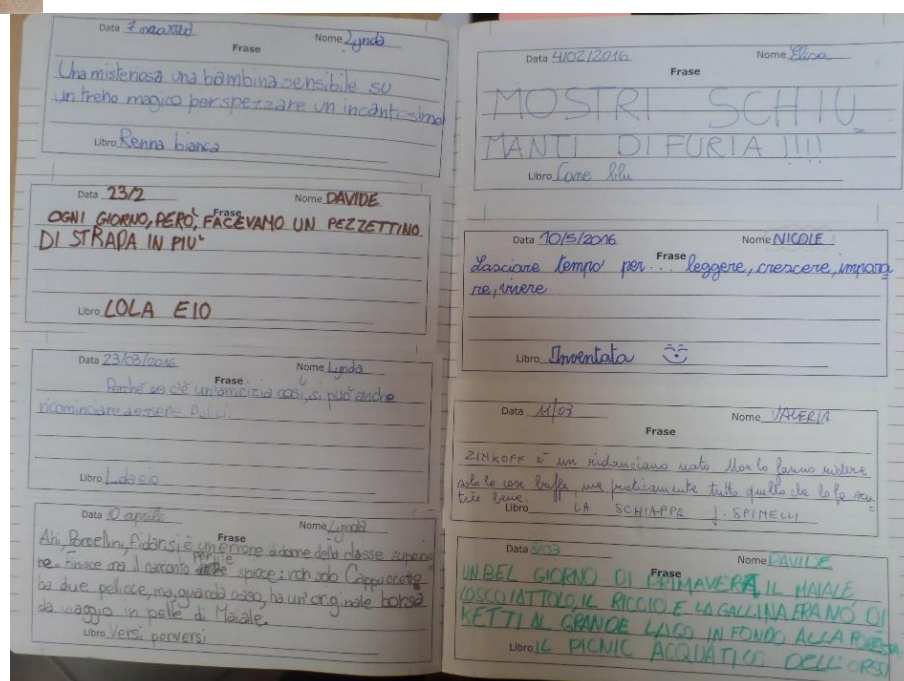 Data 7 marzo Nome Lynda
Frase
Una misteriosa una bambina sensibile su
un treno magico per spezzare un incantesimo
Libro Renna bianca
Data 23/2 Nome DAVIDE
Frase
OGNI GIORNO, PERÒ, FACEVAMO UN PEZZETTINO
DI STRADA IN PIU'
Libro LOLA E IO
Data 23/03/2016 Nome Lynda
Frase
Perché se c'è un'amicizia così, si può anche
ricominciare a essere
Libro Lola e io
Data 10 aprile Nome Lynda
Frase
Ahi, Porcellini, fidarsi è un errore a dame della classe superio
re. Finisce ma il racconto perché spiace: non solo Cappuccetto
ha due pellicce, ma, guarda caso, ha un originale borsa
da viaggio in pelle di Maiale.
Libro Versi perversi
Data 4/02/2016 Nome Elisa
Frase
MOSTRI SCHIU
MANTI DI FURIA !!!!
Libro Cane blu
Data 10/5/2016 Nome NICOLE
Frase
Lasciare tempo per... leggere, crescere, impara
re, vivere
Libro Inventata
Data 11/03 Nome VALERIA
Frase
ZINKOFF È un ridanciano nato. Non lo fanno ridere
solo le cose buffe, ma praticamente tutto quello che lo fa sen
tire bene.
Libro LA SCHIAPPA J. SPINELLI
Data 8/03 Nome DAVIDE
Frase
UN BEL GIORNO DI PRIMAVERA IL MAIALE,
LO SCOIATTOLO, IL RICCIO E LA GALLINA ERANO DI
RETTI AL GRANDE LAGO IN FONDO ALLA FORESTA
Libro IL PICNIC ACQUATICO DELL'ORSO